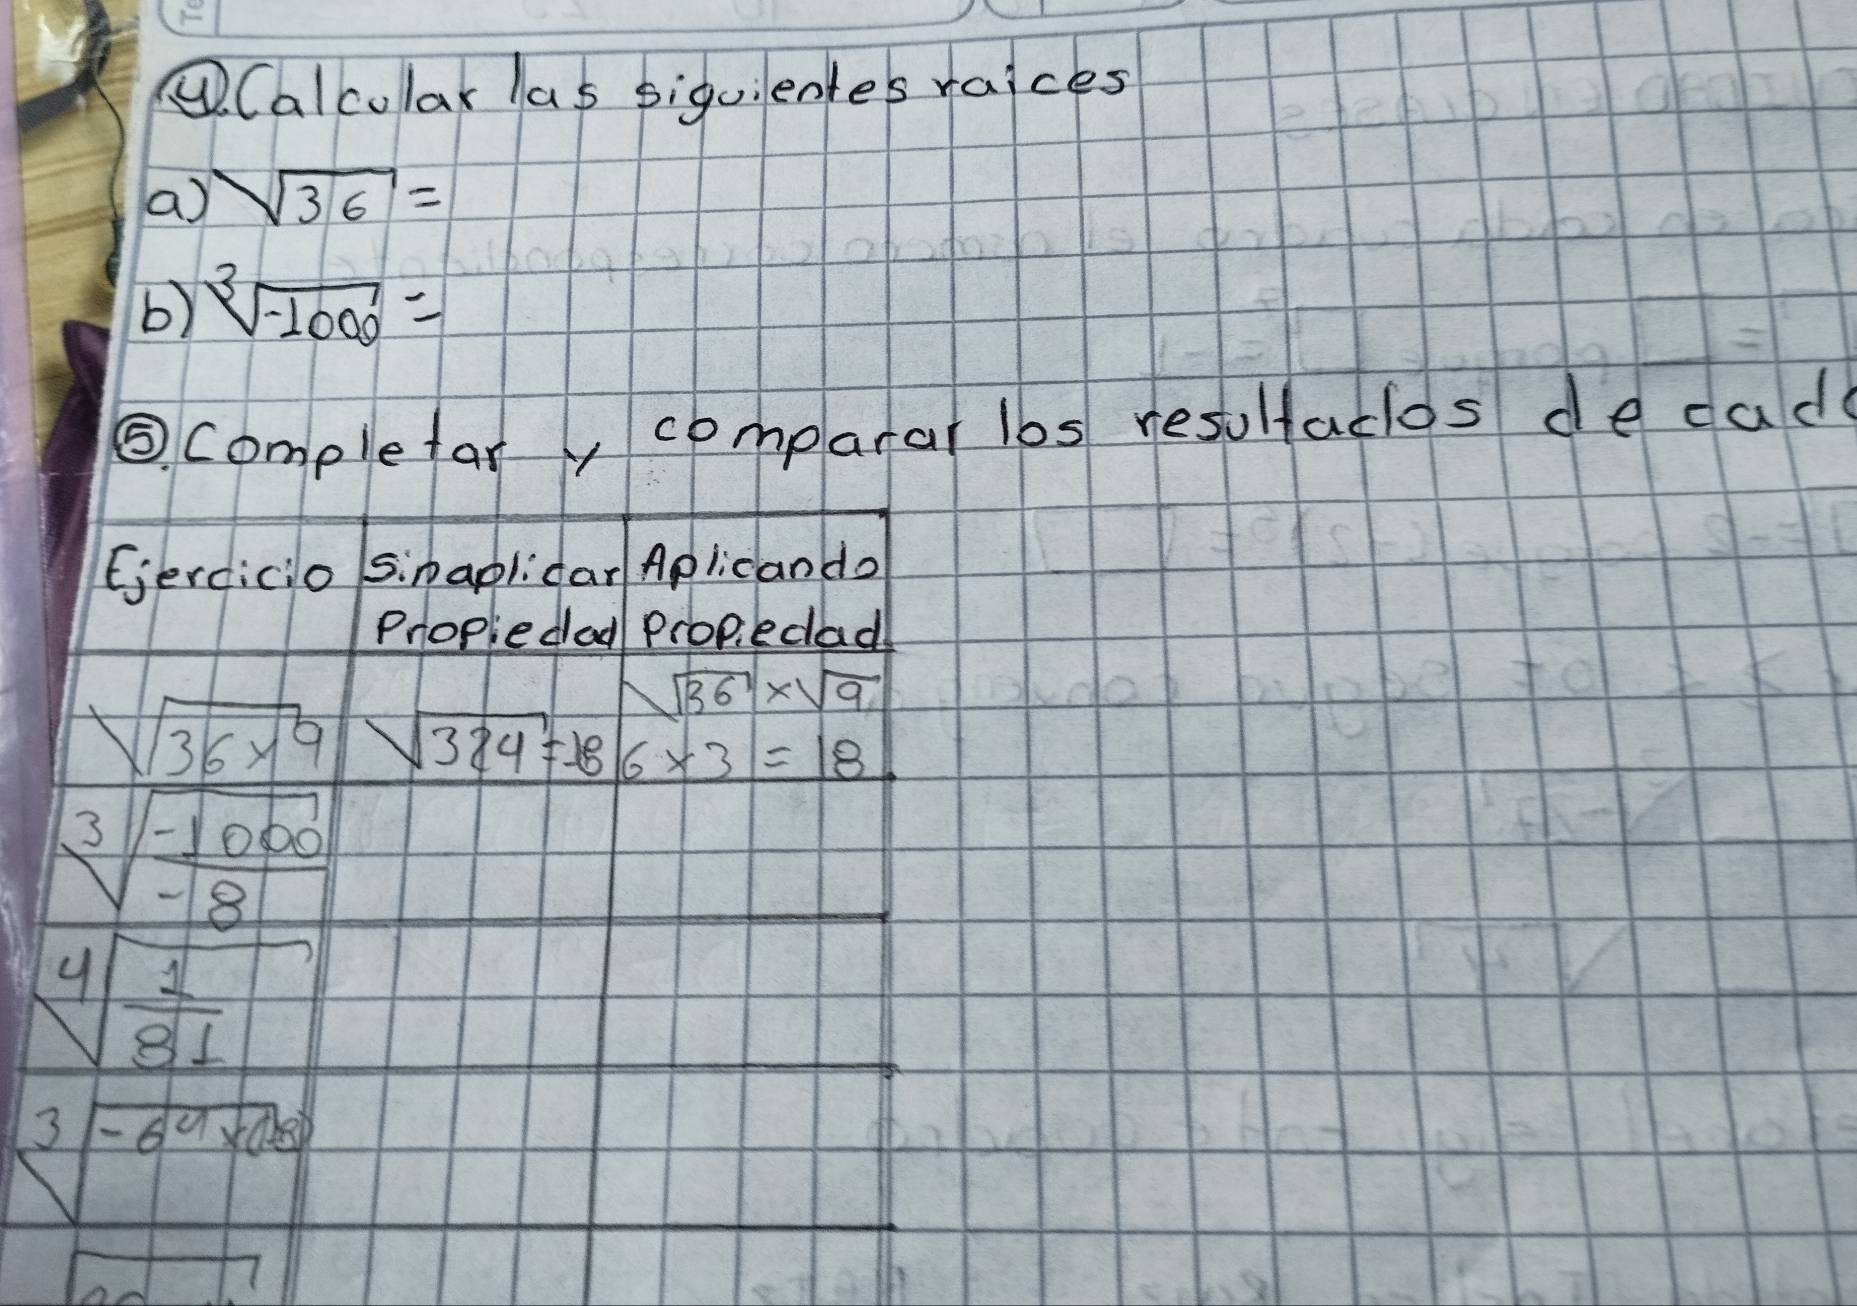 ④.Calcular las siguientes raices
a) √36 =
b) ³√-1000 =
⑤.Completar y comparar los resultados de cada
Ejercicio Sin aplicar Propiedad Aplicando Propiedad
√36x9 √324=18 √36 x √9 6x3=18
³√-1000/-8
⁴√1/81
³√-64x(-8)